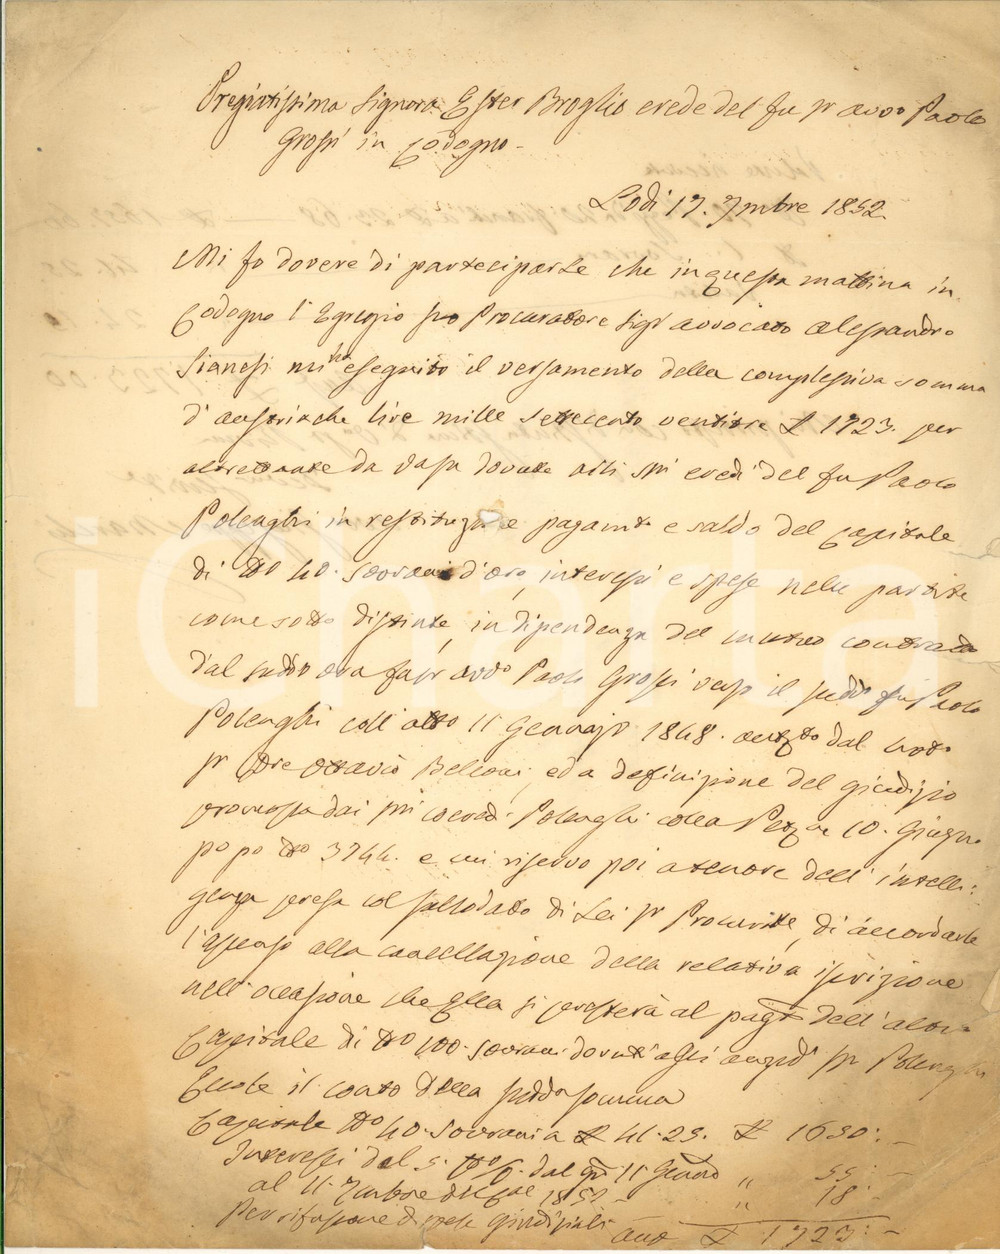 Pregiatissima Signora Ester Broglio erede del fu Sr avvo Paolo
Grossi in Codogno -
Lodi 17. 7mbre 1852
Mi fo dovere di parteciparLe che in questa mattina in
Codogno l'Egregio suo Procuratore Sigr avvocato Alessandro
Sianesi mi ha eseguito il versamento della complessiva somma
d'austriache lire mille settecento ventitre £ 1723. per
altrettante da essa dovute alli Sri eredi del fu Paolo
Polenghi in restituze e pagamto e saldo del Capitale
di No 40. Sovrani d'oro, interessi e spese nelle partite
come sotto distinte, in dipendenza del mutuo contratto
dal suddo ora fu Sr avvo Paolo Grossi verso il suddo fu Paolo
Polenghi coll'atto 11 Gennajo 1848. del noto
Sr Dre Ottavio Belloni, ed a definizione del giudizio
promosso dai Sri coeredi Polenghi colla Petizne 10. Giugno
po po No 3744. e mi riservo poi a tenore dell'intelli:
genza presa col sullodato di Lei Sr Procurre, di accordarle
l'assenso alla cancellazione della relativa iscrizione
nell'occasione che Ella si presterà al pagto dell'altro
Capitale di No 100. Sovrani dovuti agli anzidi Sri Polenghi
Eccole il conto della suddа somma
Capitale No 40. Sovrani a £ 41.25. £ 1650: -
Interessi del 5. p% dal gno 11 Genno " 55: -
al 11. 7mbre 1852 - " 18: -
Per rifusione di spese giudiziali
Aust £ 1723: -
iCharta